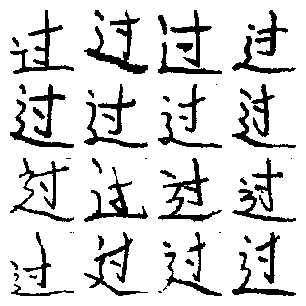 过过过过
过过过过
过过过过
过过过过